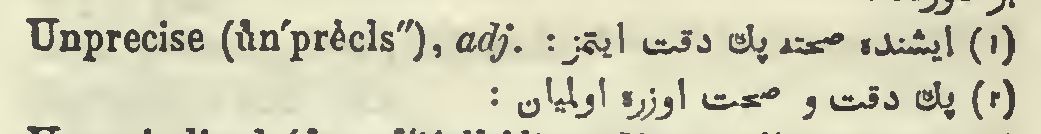 Unprecise (ŭn′prĕcīs″), adj. : (١) ایشنده صحته پك دقت ایتمز
(٢) پك دقت و صحت اوزره اولمیان :